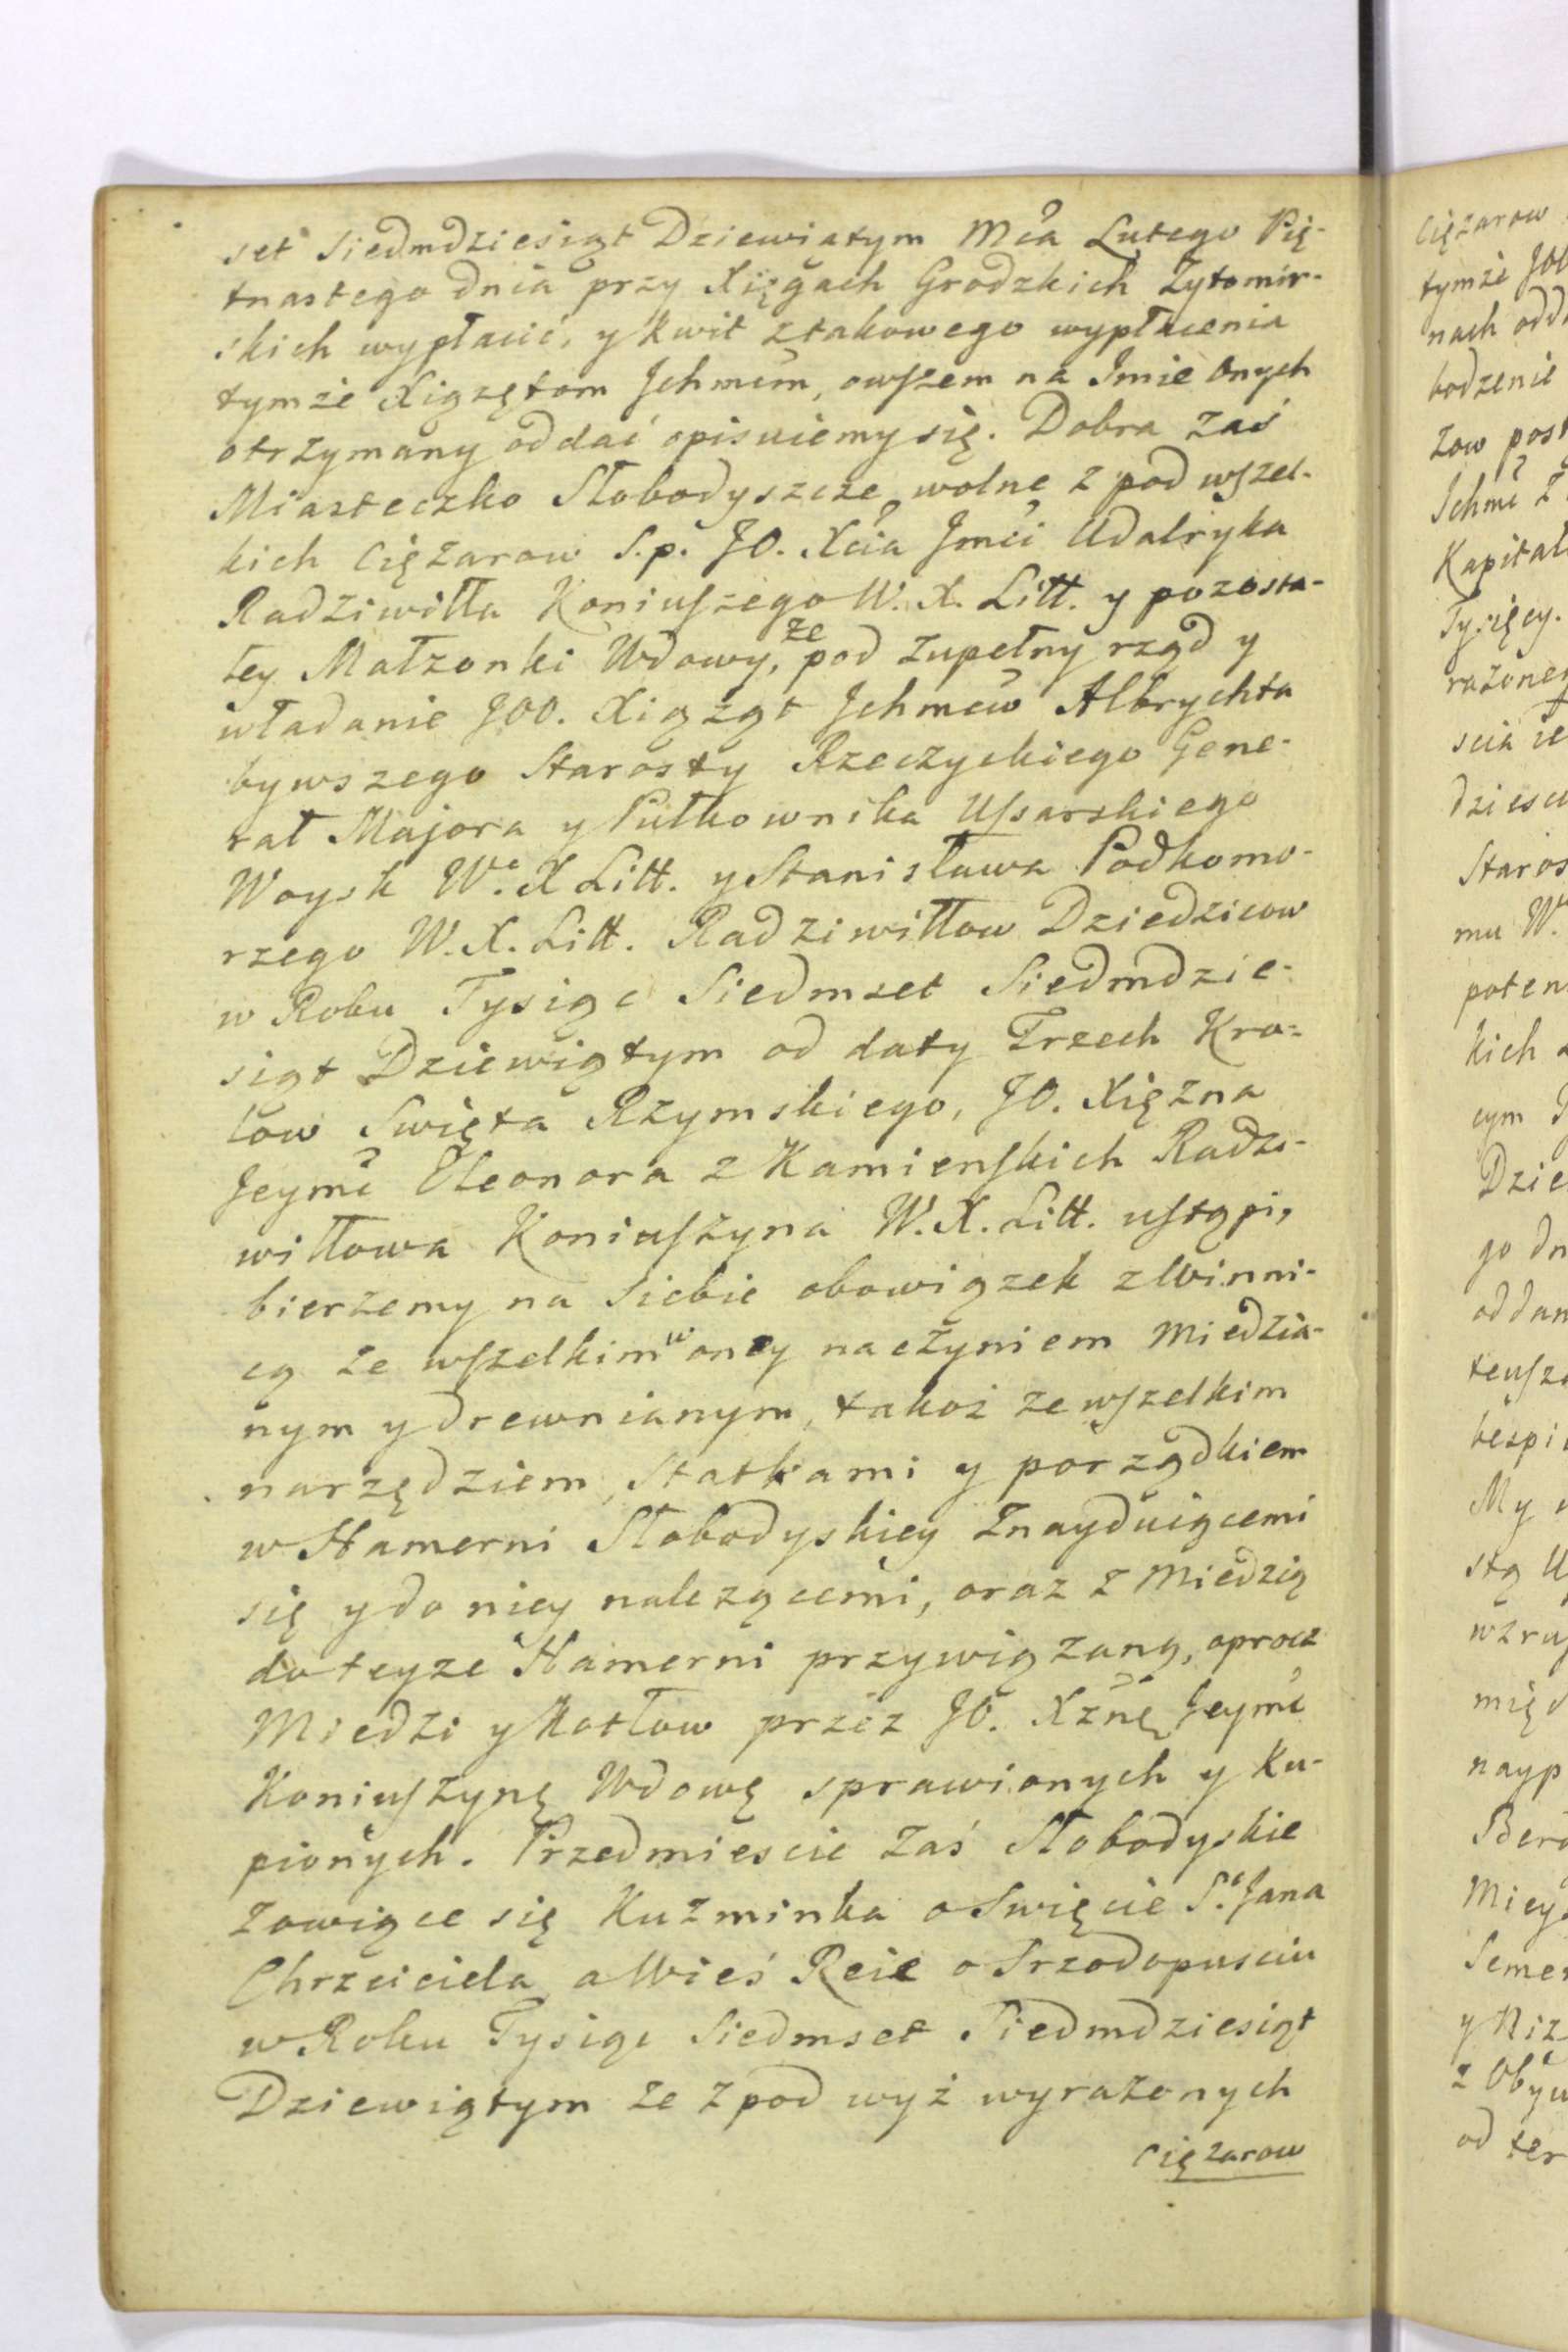 set Siedmdziesiąt Dziewiątym Mca Lutego Pię-
tnastego dnia przy Xięgach Grodzkich Zytomir-
skich wypłacić, y kwit ztakowego wypłacenia
tymże Xiążętom Jchmćm, owszem na Imie Onych
otrzymany oddać opisuiemy się. Dobra zaś
Miasteczko Słobodyszcze wolne z pod wszel-
kich Ciężarow S.p. JO. Xcia Jmci Udalryka
Radziwiłła Koniuszego W. X. Litt. y pozosta-
łey Małżonki Wdowy, że pod zupełny rząd y
władanie JOO. Xiążąt Jchmćw Albrychta
bywszego Starosty Rzeczyckiego Gene-
rał Majora y Pułkownika Ussarskiego
Woysk W. X Litt. y Stanisława Podkomo-
rzego W. X. Litt. Radziwiłłow Dziedzicow
w Roku Tysiąc Siedmset Siedmdzie-
siąt Dziewiątym od daty Trzech Kro-
low Swięta Rzymskiego, JO. Xiężna
Jeymć Eleonora z Kamienskich Radzi-
wiłłowa Koniuszyna W. X. Litt. ustąpi,
bierzemy na Siebie obowiązek zWinni-
cą ze wszelkim w oney naczyniem Miedzia-
nym y drewnianym, takoż ze wszelkim
narzędziem, Statkami y porządkiem
w Hamerni Słobodyskiey Znayduiącemi
się y do niey należącemi, oraz z Miedzią
do teyże Hamerni przywiązaną, oprocz
Miedzi y Kotłow przez JO. Xżnę Jeymć
Koniuszynę Wdowę sprawionych y Ku-
pionych. Przedmieście Zaś Słobodyskie
Zowiące się Kuzminka o Swięcie S. Jana
Chrzciciela, a Wieś Reie o Srzodopusciu
w Roku Tysiąc Siedmset Siedmdziesiąt
Dziewiątym że z pod wyż wyrażonych
Ciężarow
Ciężarow
tymże
nach
bodzenie
Zow
Jchmć
Tysięcy.
Staros
mu W.
kich
cym
Dzie
go
My
stą
nayp
od